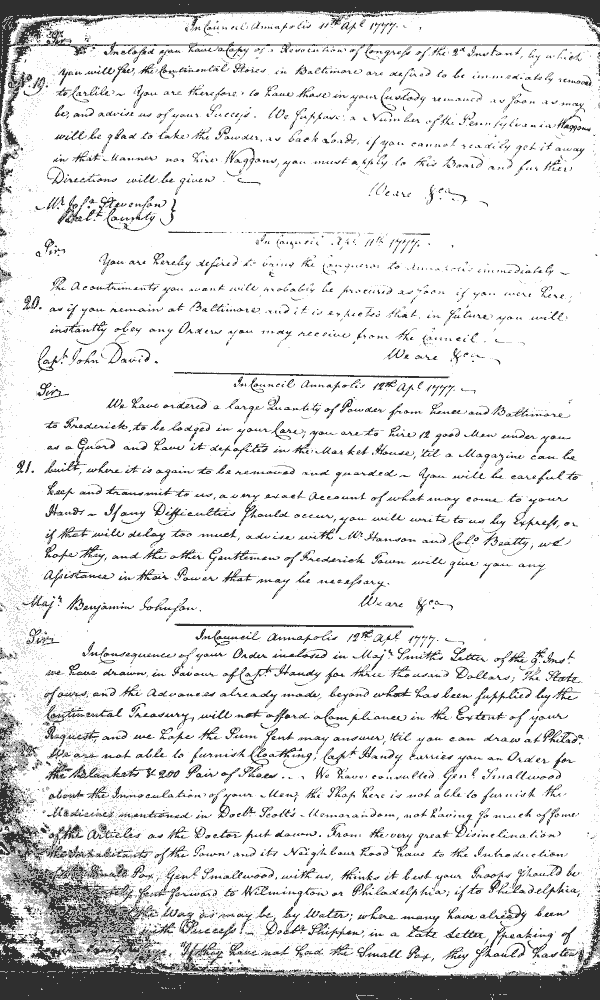 In Council Annapolis 11th Apl 1777.
Sir
Inclosed you have a Copy of a Resolution of Congress of the 2d Instant, by which
you will see, the Continental Stores in Baltimore are desired to be immediately removed
No 19. to Carlile ~ You are therefore to have those in your Custody removed as soon as may
be, and advise us of your Success. We suppose a Number of the Pennsylvania Waggons
will be glad to take the Powder, as back Loads, if you cannot readily get it away
in that Manner nor hire Waggons, you must apply to this Board and further
Directions will be given.
We are &ca
Mr Josa Stevenson }
Balt County }
In Council Apl 11th 1777.
Sir
You are hereby desired to bring the Conqueror to Annapolis immediately ~
The Acoutriments you want will probably be procured as soon if you were here,
20. as if you remain at Baltimore and it is expected that, in future you will
instantly obey any Orders you may receive from the Council.
Capt John David. We are &ca
In Council Annapolis 12th Apl 1777.
Sir
We have ordered a large Quantity of Powder from hence and Baltimore
to Frederick, to be lodged in your Care; you are to hire 12 good Men under you
as a Guard and have it deposited in the Market House, 'til a Magazine can be
21. built, where it is again to be removed and guarded ~ You will be careful to
keep and transmit to us, a very exact Account of what may come to your
Hands ~ If any Difficulties should occur, you will write to us by Express, or
if that will delay too much, advise with Mr Hanson and Colo Beatty, we
hope they, and the other Gentlemen of Frederick Town will give you any
Assistance in their Power that may be necessary.
Majr Benjamin Johnson. We are &ca
In Council Annapolis 12th Apl 1777.
Sir
In Consequence of your Order inclosed in Majr Smith's Letter of the 9th Inst.
we have drawn, in Favour of Capt Handy for three thousand Dollars; The State
of ours, and the Advances already made, beyond what has been supplied by the
Continental Treasury, will not afford a Compliance in the Extent of your
Request, and we hope the Sum sent may answer, 'til you can draw at Philada.
We are not able to furnish Cloathing; Capt Handy carries you an Order for
the Blankets & 200 Pair of Shoes. ~ We have consulted Genl Smallwood
about the Innoculation of your Men; the Shop here is not able to furnish the
Medicines mentioned in Doctr Scott's Memorandum, not having so much of some
of the Articles as the Doctor put down. From the very great Disinclination
the Inhabitants of the Town and its Neighbourhood have to the Introduction
Small Pox, Genl Smallwood, with us, thinks it best your Troops should be
sent forward to Wilmington or Philadelphia; if to Philadelphia,
the Way as may be, by Water, where many have already been
with Success. ~ Doctr Shippen, in a late Letter speaking of
If they have not had the Small Pox, they should hasten